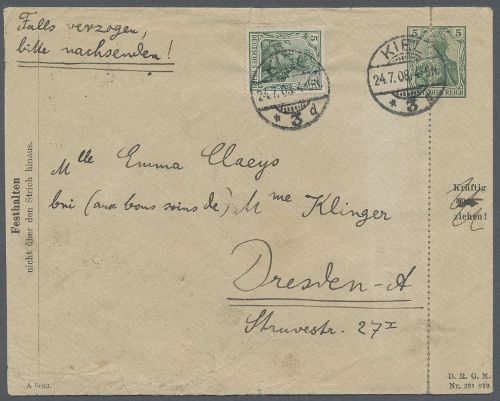 Falls verzogen,
bitte nachsenden!
5
DEUTSCHES REICH
5 5
DEUTSCHES REICH
KIEL
24.7.08.
* 3 d
KIEL
24.7.08.
* 3 d
Festhalten
nicht über den Strich hinaus.
Mlle Emma Claeys
bei (aux bons soins de) Mme Klinger
Dresden-A
Struvestr. 27 I
Kräftig
ziehen!
D. R. G. M.
Nr. 321 829